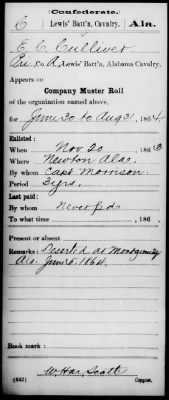 (Confederate.)
C Lewis' Batt'n, Cavalry. Ala.
E. C. Culliver
Pvt. Co. A, Lewis' Batt'n, Alabama Cavalry.
Appears on
Company Muster Roll
of the organization named above,
for June 30 to Aug 31, 1864.
Enlisted:
When Nov 20, 1863
Where Newton Ala.
By whom Capt Morrison
Period 3 yrs.
Last paid:
By whom Never pd
To what time , 186 .
Present or absent
Remarks: Deserted at Montgomery
Ala. June 5 1864.
Book mark:
(642) Copyist.